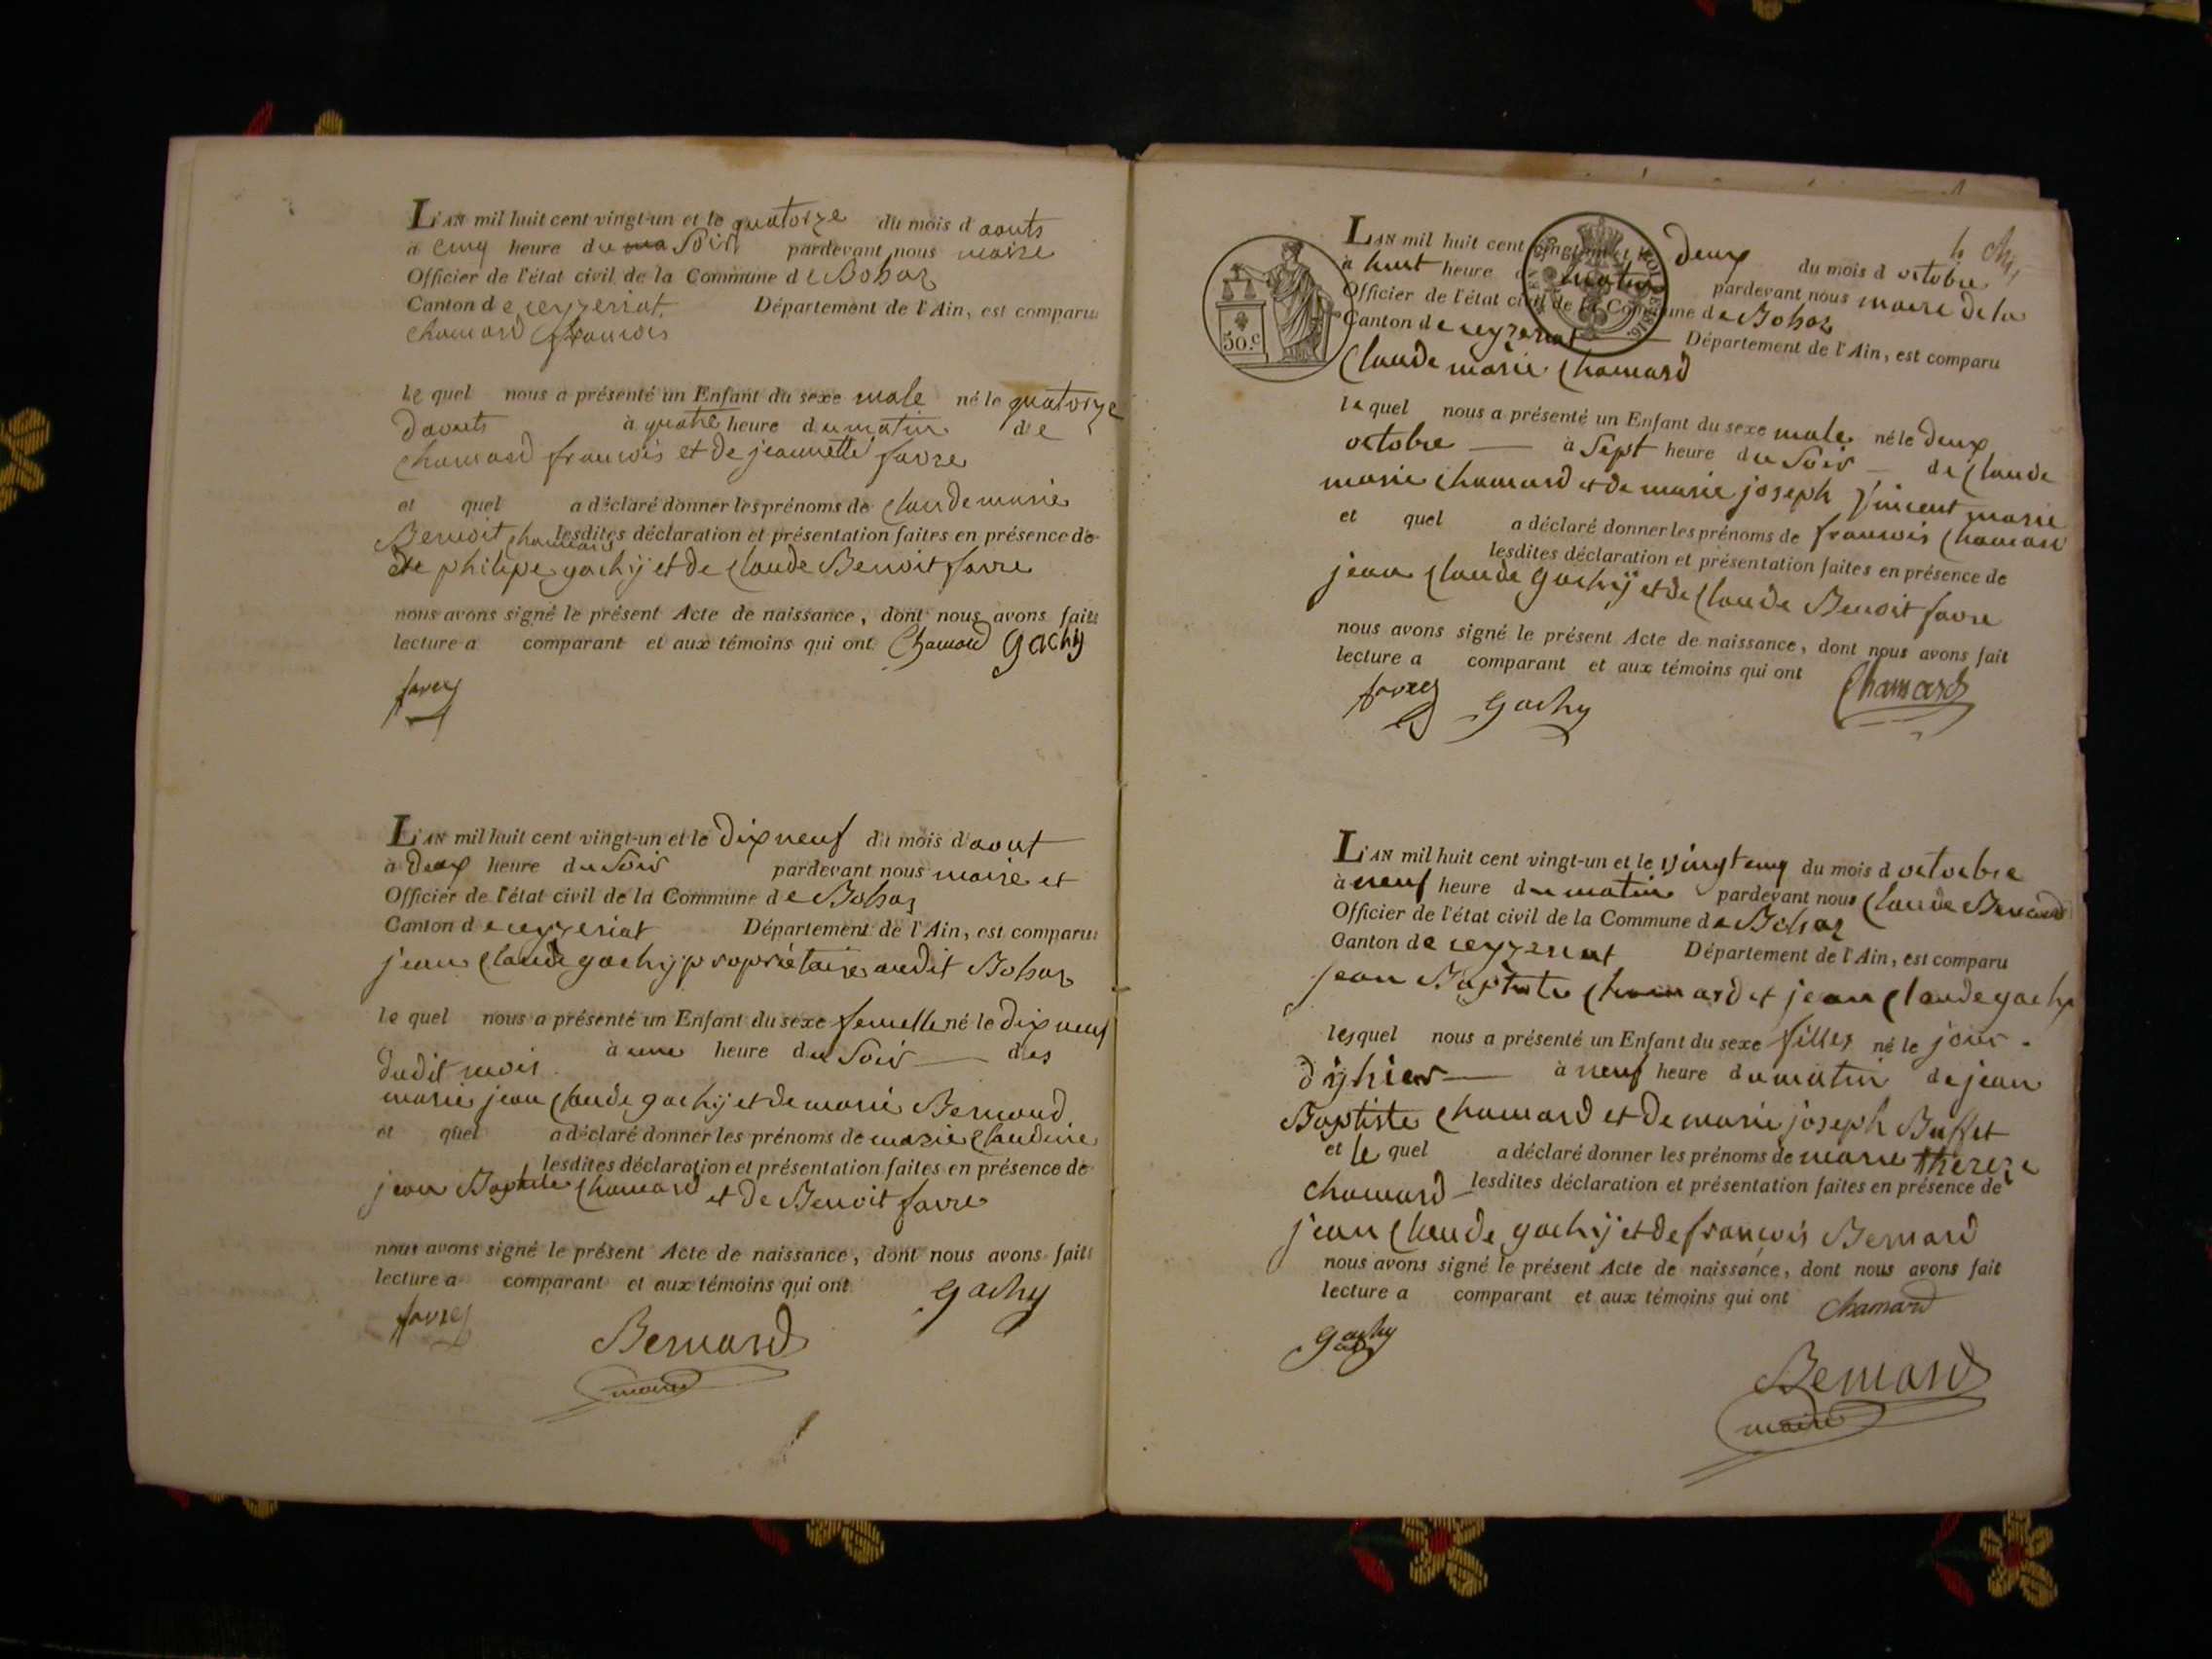 L'AN mil huit cent vingt-un et le quatorze du mois d aouts
à cinq heure du soir pardevant nous maire
Officier de l'état civil de la Commune de Bohas
Canton de ceyzeriat Département de l'Ain, est comparu
chamard francois
le quel nous a présenté un Enfant du sexe male né le quatorze
daouts à quatre heure du matin de
chamard francois et de jeannette favre
et quel a déclaré donner les prénoms de claude marie
Benoit chamard lesdites déclaration et présentation faites en présence de
de philipe gachy et de claude Benoit favre
nous avons signé le présent Acte de naissance, dont nous avons fait
lecture a comparant et aux témoins qui ont Chamard gachy
favre
L'AN mil huit cent vingt-un et le dix neuf du mois d'aout
à deux heure du soir pardevant nous maire et
Officier de l'état civil de la Commune de Bohas
Canton de ceyzeriat Département de l'Ain, est comparu
jean claude gachy propriétaire audit Bohas
le quel nous a présenté un Enfant du sexe femelle né le dix neuf
dudit mois à une heure du soir des
marie jean claude gachy et de marie Bernard
et quel a déclaré donner les prénoms de marie claudine
lesdites déclaration et présentation faites en présence de
jean Baptiste chamard et de Benoit favre
nous avons signé le présent Acte de naissance, dont nous avons fait
lecture a comparant et aux témoins qui ont gachy
favre Bernard
maire
L'AN mil huit cent vingt-un et le deux du mois d octobre
à huit heure du matin pardevant nous maire de la
Officier de l'état civil de la Commune de Bohas
Canton de ceyzeriat Département de l'Ain, est comparu
50.c
1816
claude marie chamard
le quel nous a présenté un Enfant du sexe male né le deux
octobre à sept heure du soir de claude
marie chamard et de marie joseph vincent marie
et quel a déclaré donner les prénoms de francois chamard
lesdites déclaration et présentation faites en présence de
jean claude gachy et de claude Benoit favre
nous avons signé le présent Acte de naissance, dont nous avons fait
lecture a comparant et aux témoins qui ont Chamard
favre gachy
L'AN mil huit cent vingt-un et le vingt cinq du mois d octobre
à neuf heure du matin pardevant nous claude Bernard
Officier de l'état civil de la Commune de Bohas
Canton de ceyzeriat Département de l'Ain, est comparu
jean Baptiste chamard et jean claude gachy
lesquel nous a présenté un Enfant du sexe filles né le jour
dyhier à neuf heure du matin de jean
Baptiste chamard et de marie joseph Buffet
et le quel a déclaré donner les prénoms de marie thereze
chamard lesdites déclaration et présentation faites en présence de
jean claude gachy et de francois Bernard
nous avons signé le présent Acte de naissance, dont nous avons fait
lecture a comparant et aux témoins qui ont chamard
gachy
Bernard
maire